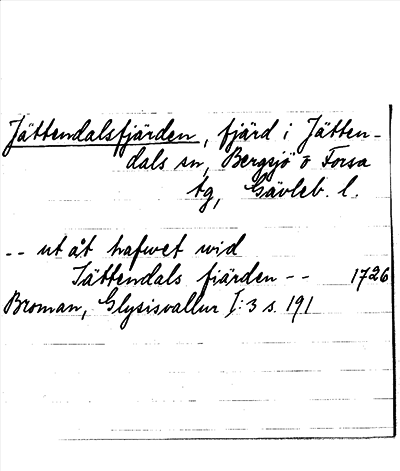 Jättendalsfjärden, fjärd i Jätten-
dals sn, Bergsjö o Forsa
tg, Gävleb. l.
-- ut åt hafwet wid
Jättendals fiärden -- 1726
Broman, Glysisvallur I:3 s. 191